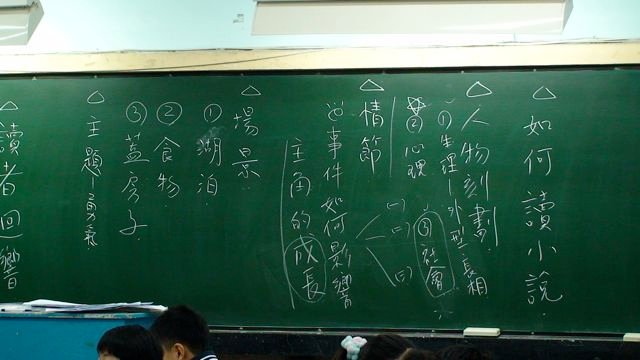 △如何讀小說
△人物刻劃
①生理—外型、長相
②心理
③社會
△情節
從事件如何影響
主角的成長
(一)
(二)
(三)
△場景
①湖泊
②食物
③蓋房子
△主題—勇氣
△讀者回響